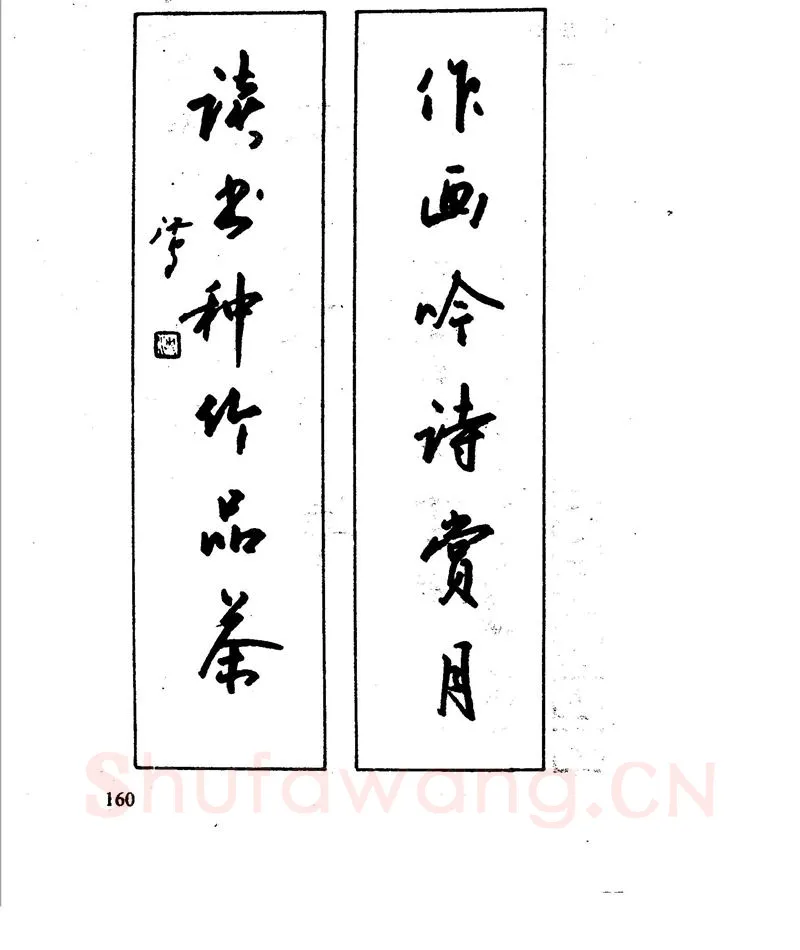 作画吟诗赏月
读书种竹品茶
160
Shufawang.CN